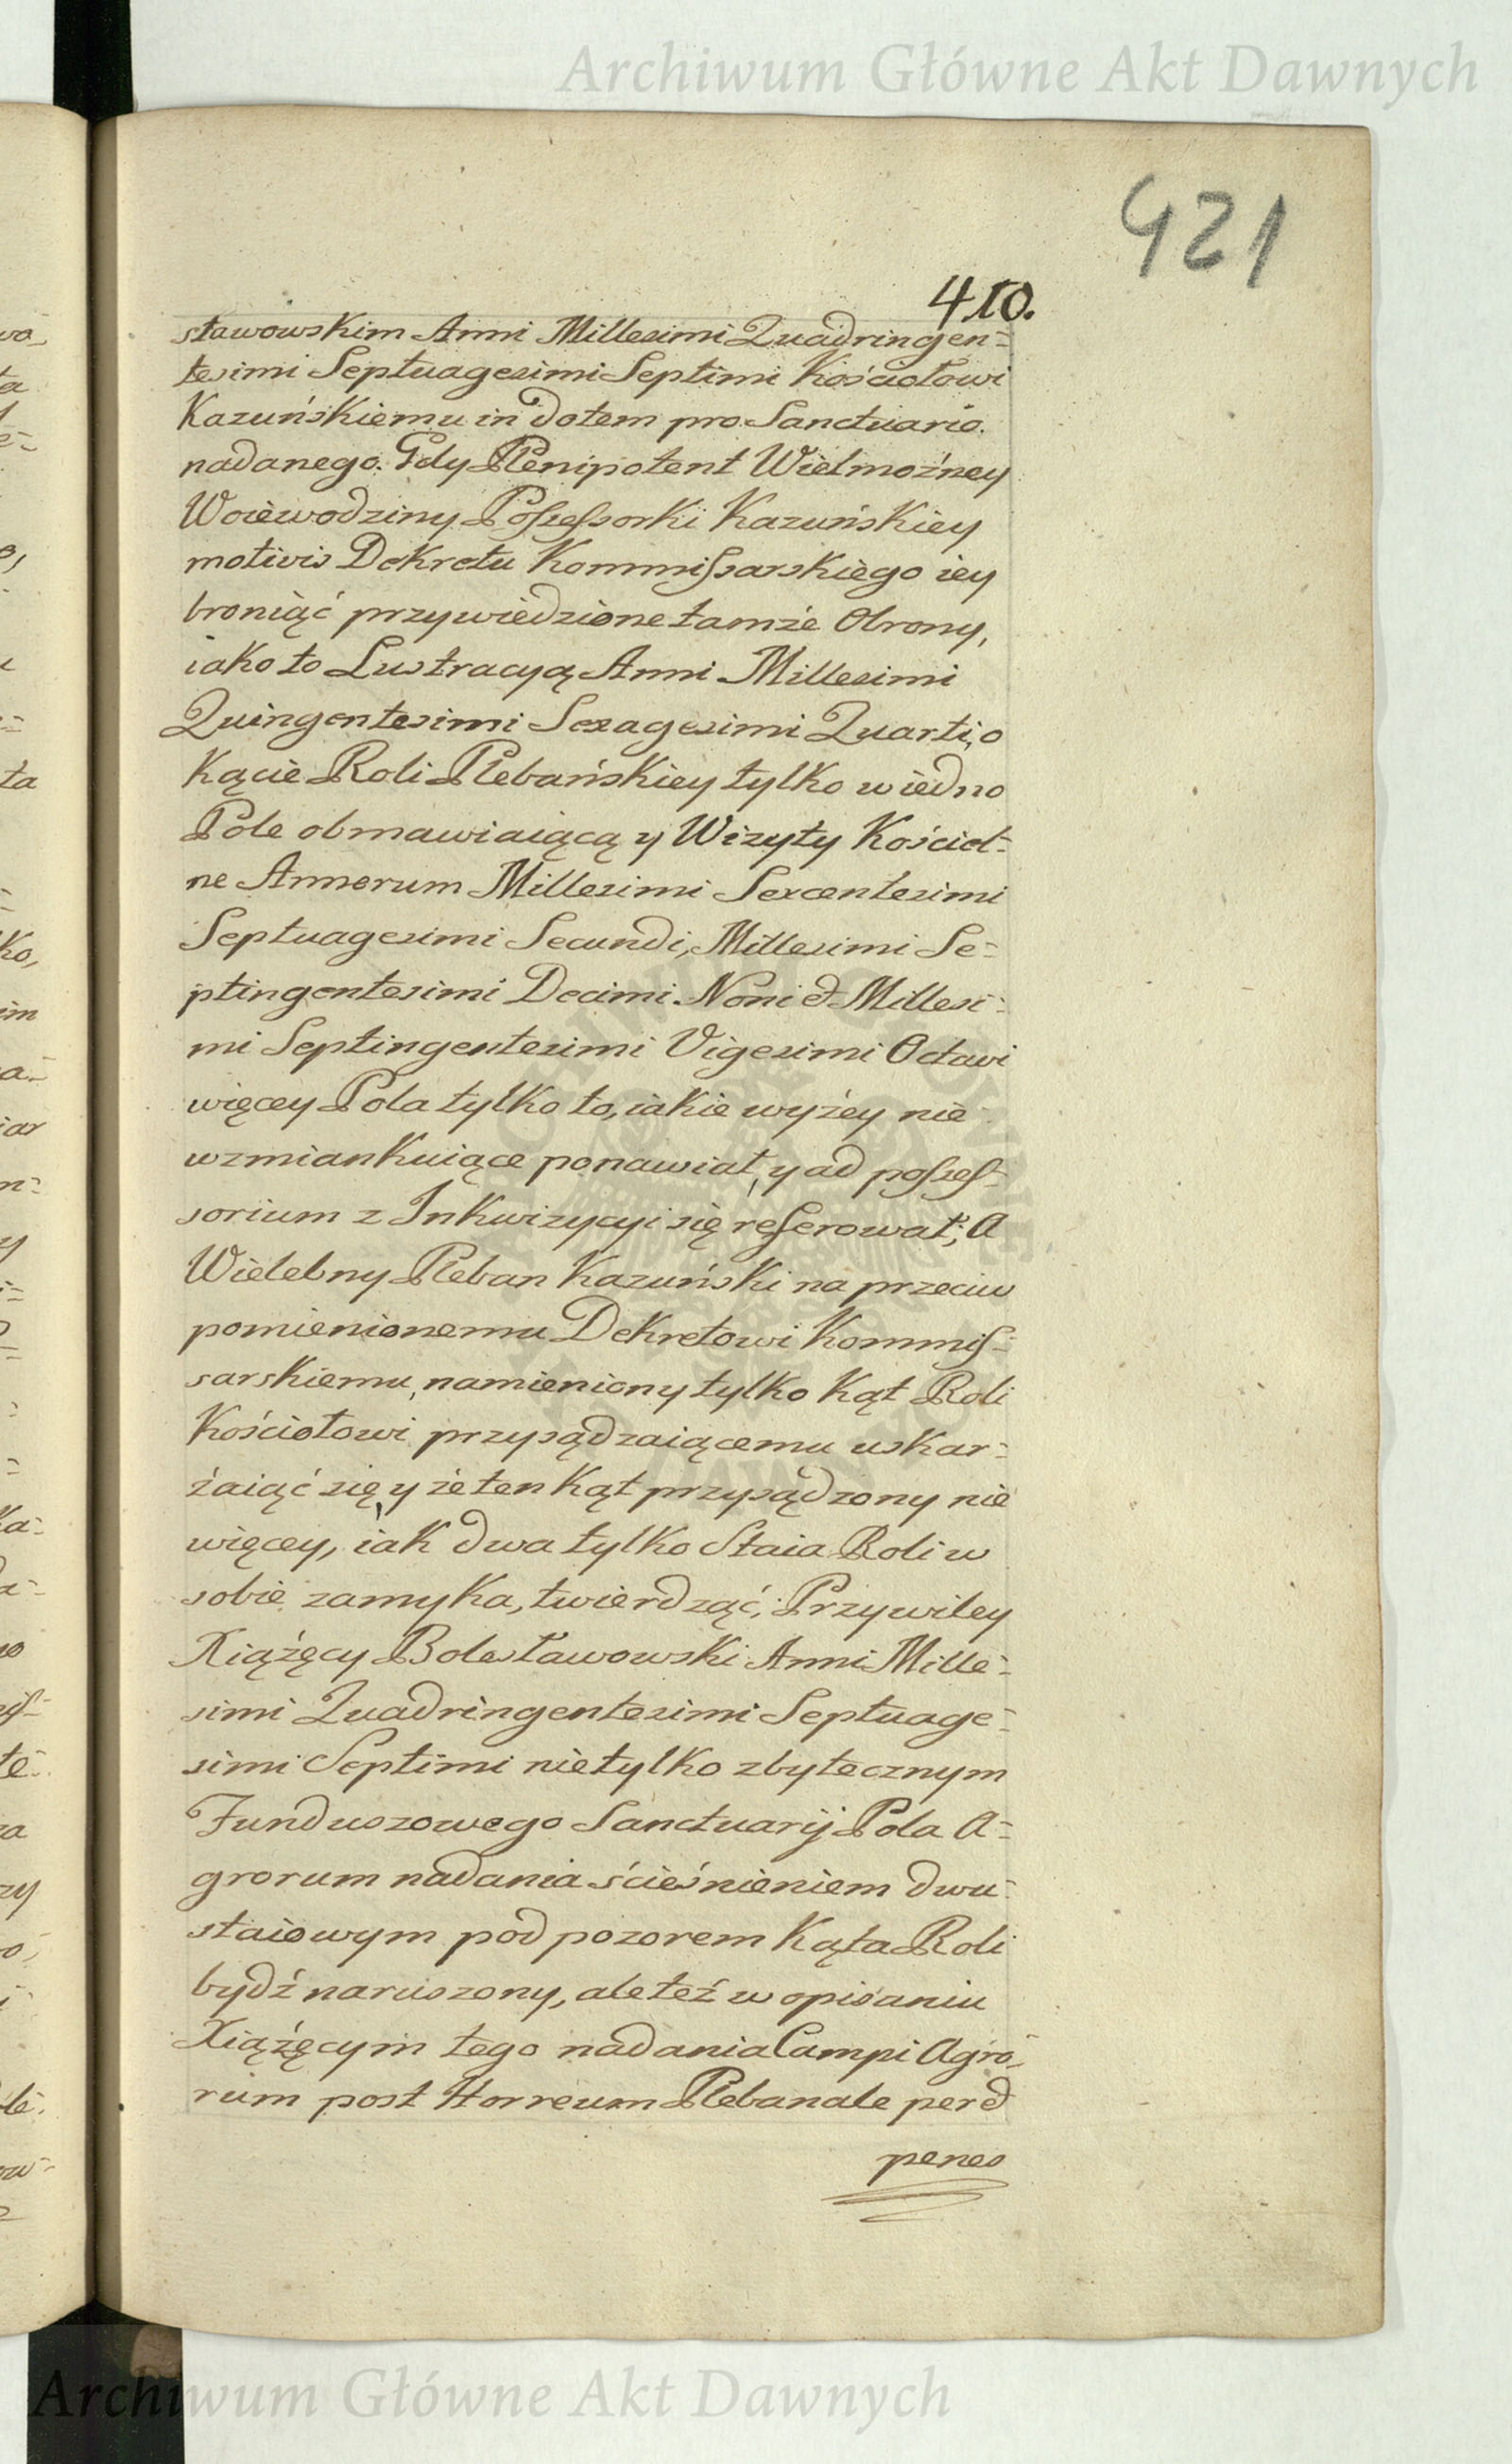 Archiwum Główne Akt Dawnych
421
410.
sławowskim Anni Millesimi Quadringen=
tesimi Septuagesimi Septimi Kościołowi
Kazuńskiemu in dotem pro Sanctuario.
nadanego. Gdy Plenipotent Wielmożney
Woiewodziny Possessorki Kazuńskiey
motivis Dekretu Kommissarskiego iey
broniąć przywiedzione tamże Obrony,
iako to Lustracyą Anni Millesimi
Quingentesimi Sexagesimi Quarti, o
Kącie Roli Plebańskiey tylko w iedno
Pole obmawiaiącą y Wizyty Kościel=
ne Annorum Millesimi Sexcentesimi
Septuagesimi Secundi, Millesimi Se=
ptingentesimi Decimi Noni et Millesi=
mi Septingentesimi Vigesimi Octavi
więcey Pola tylko to, iakie wyżey nie
wzmiankuiące ponawiał, y ad posses=
sorium z Inkwizycyi się referował; A
Wielebny Pleban Kazuński na przeciw
pomienionemu Dekretowi Kommis=
sarskiemu, namieniony tylko Kąt Roli
Kościołowi przysądzaiącemu uskar=
żaiąć się, y że ten Kąt przysądzony nie
więcey, iak dwa tylko Staia Roli w
sobie zamyka, twierdząć; Przywiley
Xiążęcy Bolesławowski Anni Mille=
simi Quadringentesimi Septuage=
simi Septimi nie tylko zbytecznym
Funduszowego Sanctuarij Pola A=
grorum nadania ścieśnieniem dwu=
staiowym pod pozorem Kąta Roli
bydź naruszony, ale też w opisaniu
Xiążęcym tego nadania Campi Agro=
rum post Horreum Plebanale per et
penes
Archiwum Główne Akt Dawnych